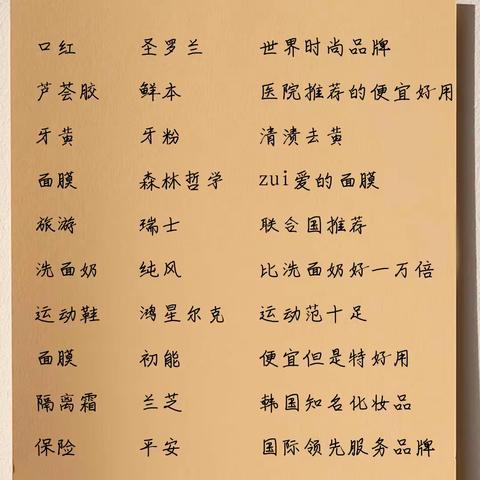 口红 圣罗兰 世界时尚品牌
芦荟胶 鲜本 医院推荐的便宜好用
牙黄 牙粉 清溃去黄
面膜 森林哲学 zui爱的面膜
旅游 瑞士 联合国推荐
洗面奶 纯风 比洗面奶好一万倍
运动鞋 鸿星尔克 运动范十足
面膜 初能 便宜但是特好用
隔离霜 兰芝 韩国知名化妆品
保险 平安 国际领先服务品牌